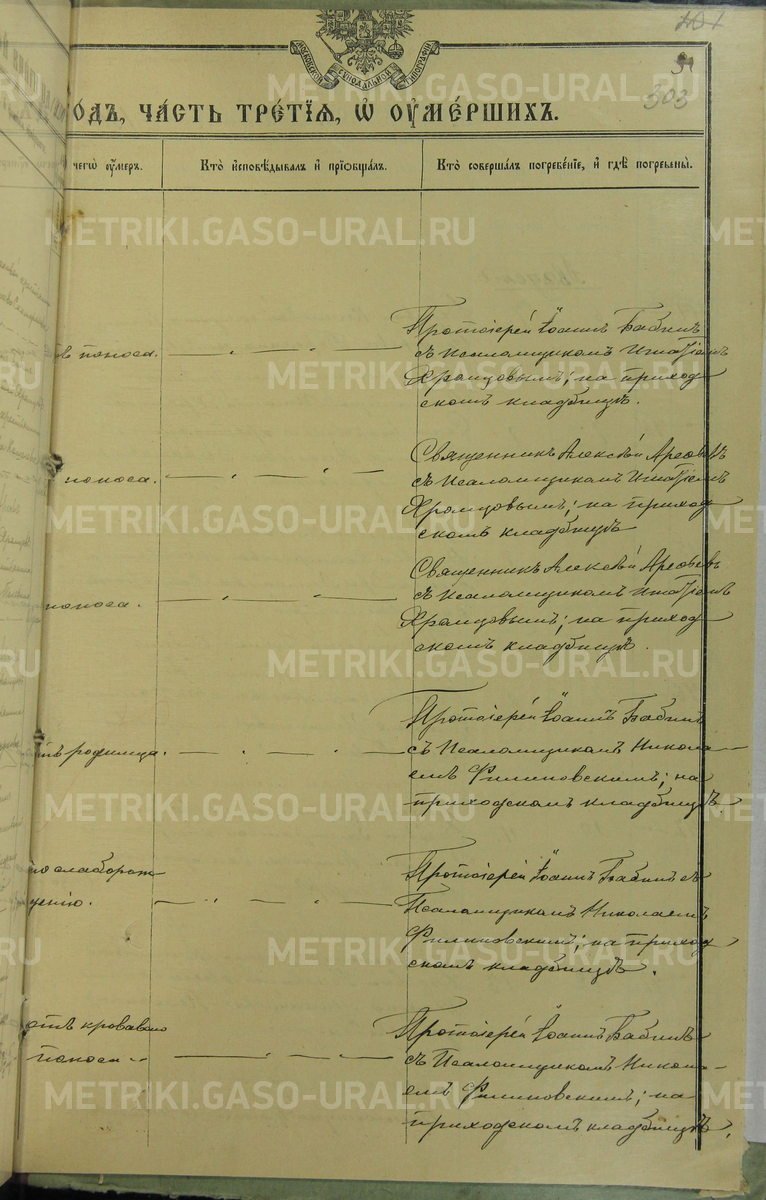 303
МОСКОВСКОЙ СУНОДАЛЬНОЙ ТИПОГРАФІИ
ОДЪ, ЧАСТЬ ТРЕТІЯ, Ѡ ОУМЕРШИХЪ.
чегѡ оумеръ.
Кто исповѣдывалъ и пріобщалъ.
Кто совершалъ погребеніе, и гдѣ погребены.
поноса.
Протоіерей Іоаннъ Бабинъ
съ Псаломщикомъ Игнатіемъ
Храмцовымъ; на приход
скомъ кладбищѣ.
поноса.
Священникъ Алексѣй Арефьевъ
съ Псаломщикомъ Игнатіемъ
Храмцовымъ; на приход
скомъ кладбищѣ
поноса.
Священникъ Алексѣй Арефьевъ
съ Псаломщикомъ Игнатіемъ
Храмцовымъ; на приход
скомъ кладбищѣ.
отъ родимца.
Протоіерей Іоаннъ Бабинъ
съ Псаломщикомъ Никола
емъ Филиповскимъ; на
приходскомъ кладбищѣ.
по слаборож
денію.
Протоіерей Іоаннъ Бабинъ съ
Псаломщикомъ Николаемъ
Филиповскимъ; на приход
скомъ кладбищѣ.
отъ кроваваго
поноса
Протоіерей Іоаннъ Бабинъ
съ Псаломщикомъ Никола
емъ Филиповскимъ; на
приходскомъ кладбищѣ.
METRIKI.GASO-URAL.RU